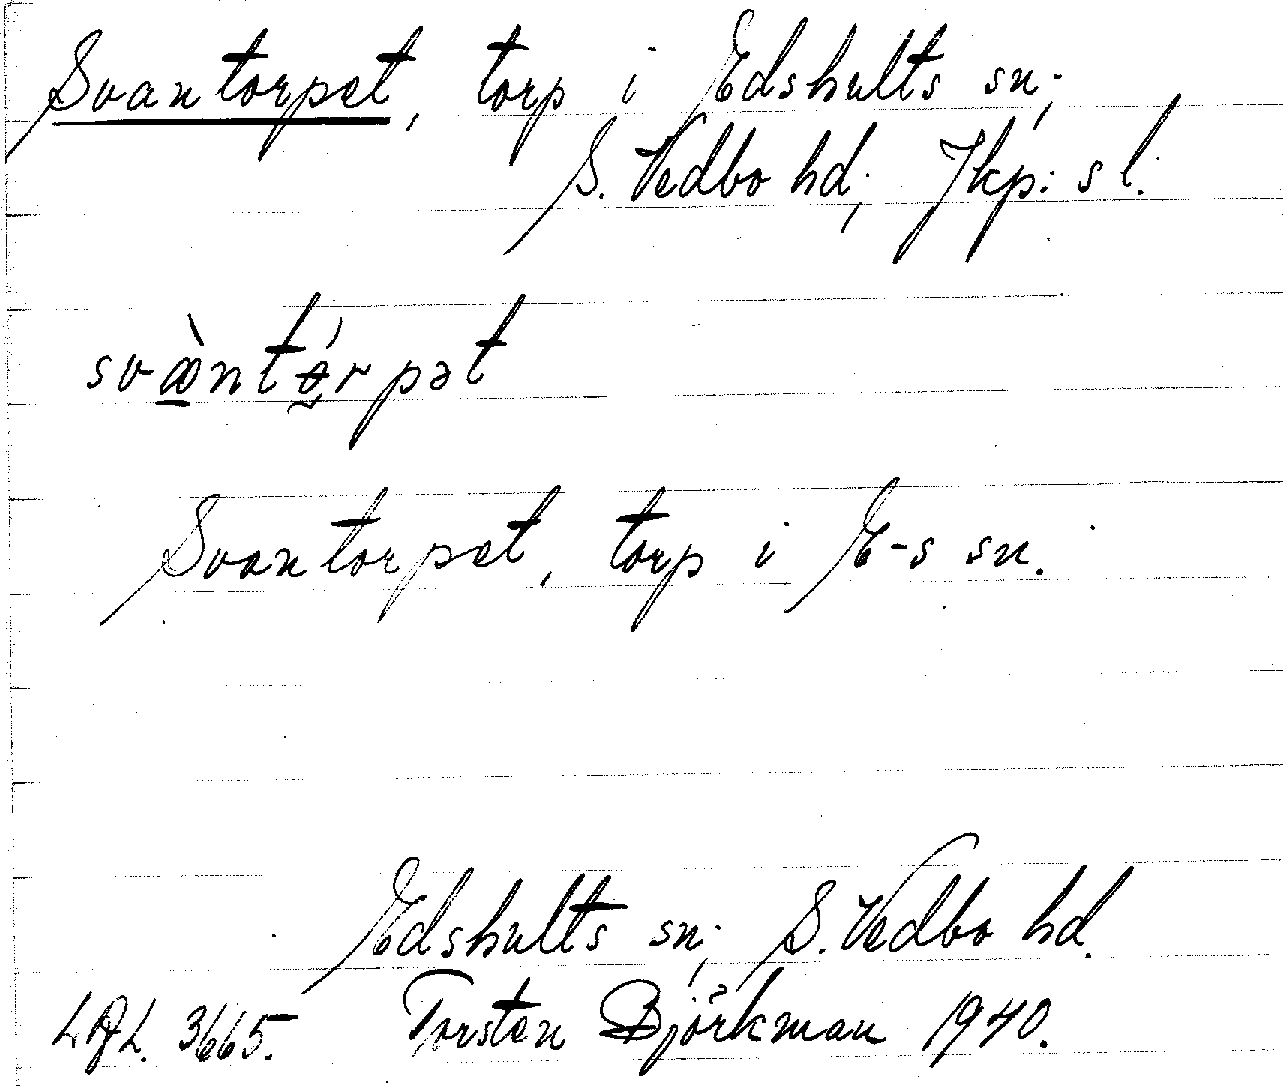 Svantorpet, torp i Edshults sn;
S. Vedbo hd; Jkp: s l.
Svantorpet, torp i E-s sn.
Edshults sn; S. Vedbo hd.
LAL. 3665. Torsten Björkman 1940.